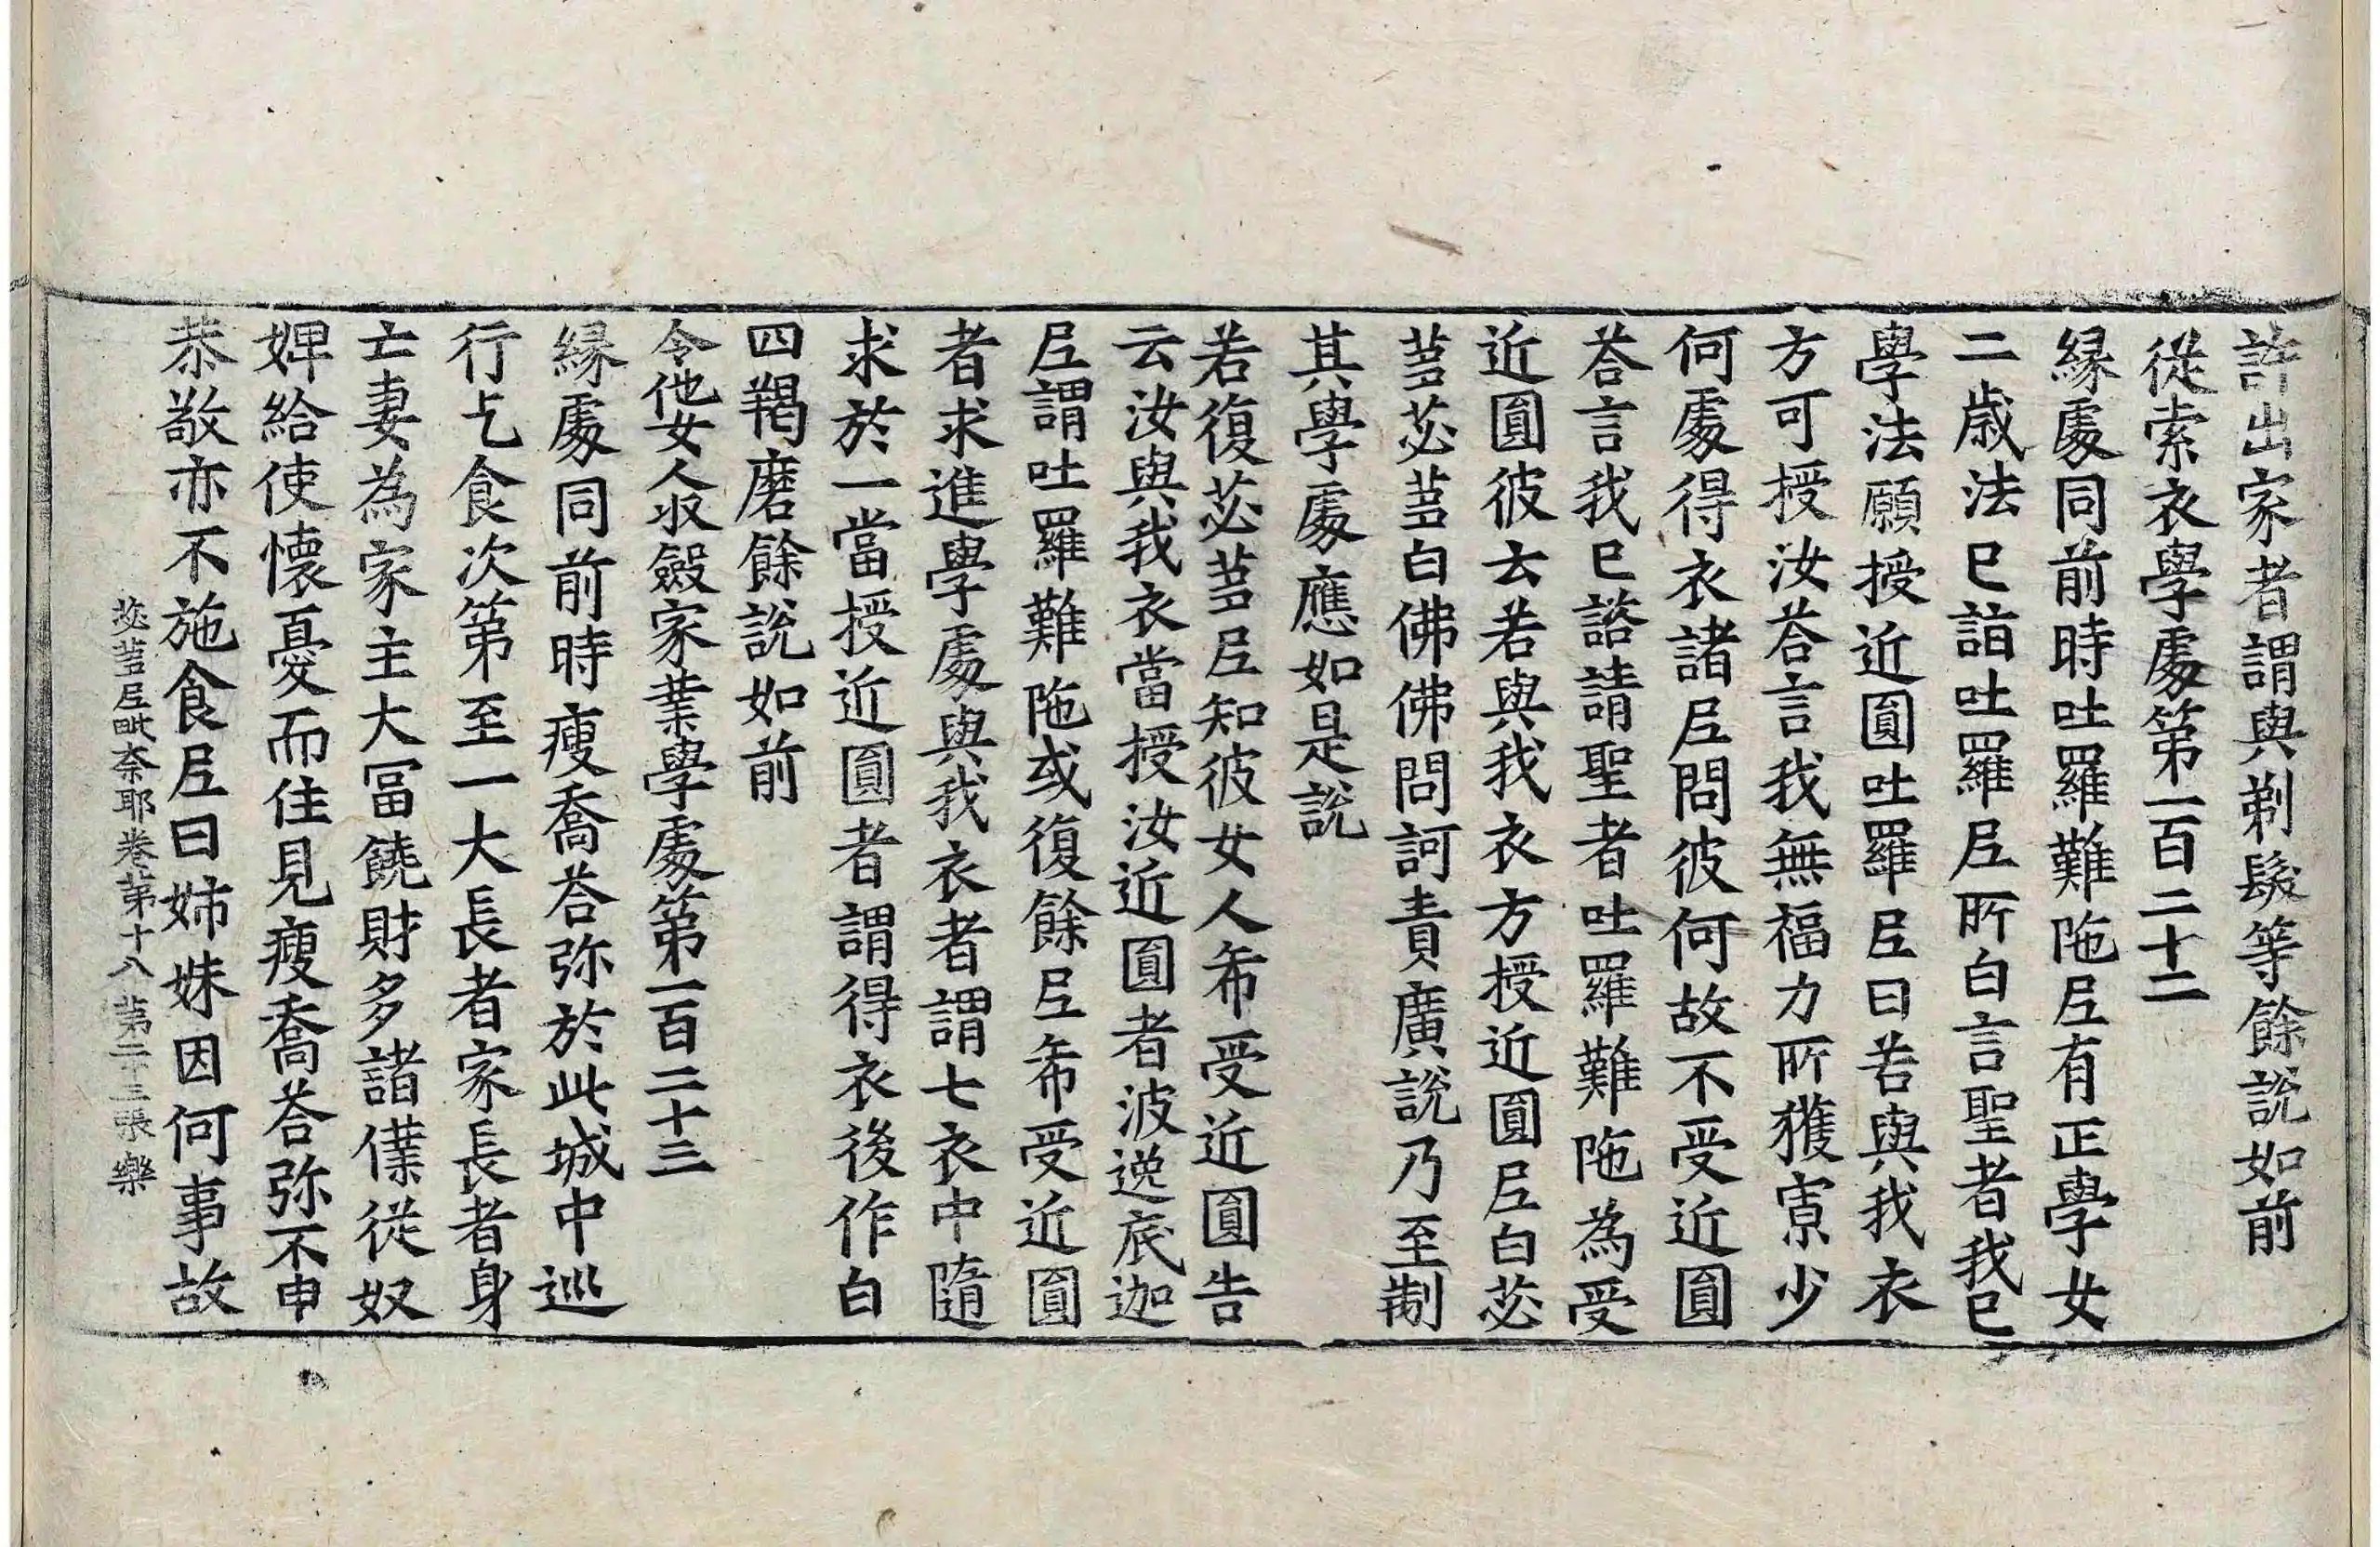 許出家者謂與剃髮等餘說如前
從索衣學處第一百二十二
縁處同前時吐羅難陁尼有正學女
二歲法已詣吐羅尼所白言聖者我已
學法願授近圓吐羅尼曰若與我衣
方可授汝荅言我無福力所獲寡少
何處得衣諸尼問彼何故不受近圓
荅言我已諮請聖者吐羅難陁為受
近圓彼云若與我衣方授近圓尼白苾
蒭苾蒭白佛佛問訶責廣說乃至制
其學處應如是說
若復苾蒭尼知彼女人希受近圓告
云汝與我衣當授汝近圓者波逸底迦
尼謂吐羅難陁或復餘尼希受近圓
者求進學處與我衣者謂七衣中隨
求於一當授近圓者謂得衣後作白
四羯磨餘說如前
令他女人收斂家業學處第一百二十三
縁處同前時瘦喬荅弥於此城中巡
行乞食次第至一大長者家長者身
亡妻為家主大冨饒財多諸僕從奴
婢給使懷憂而住見瘦喬荅弥不申
恭敬亦不施食尼曰姉妹因何事故
苾蒭尼毗奈耶卷第十八 第二十三張 樂